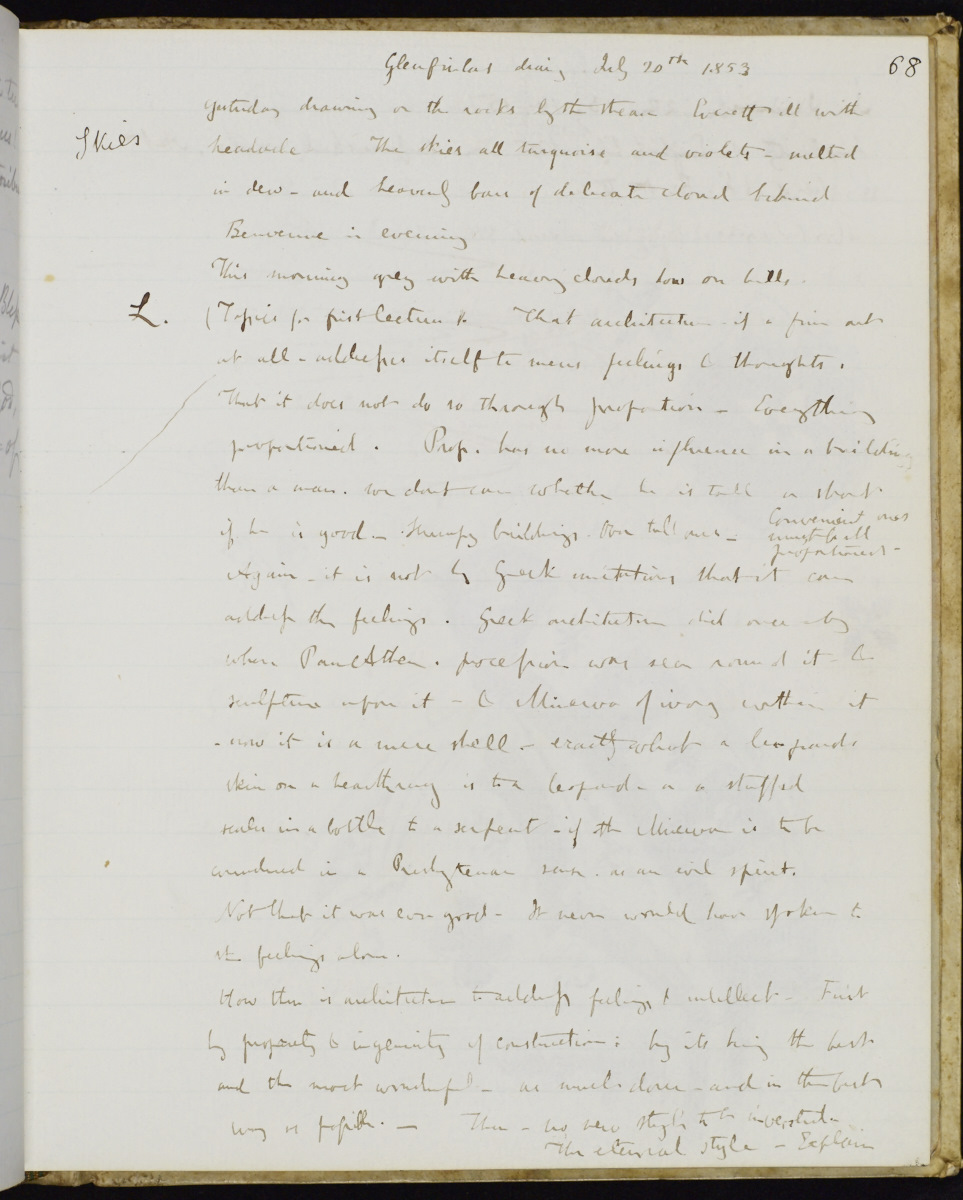 68
Glenfinlas diary July 20th 1853
yesterday drawing on the rocks by the stream Everett ill with
Skies
headache The skies all turquoise and violets - melted
in dew - and heavenly bars of delicate cloud behind
Benvenue in evening
This morning grey with heavy clouds low on hills.
L.
(Topics for first lecture. That architecture - if a fine art
at all - addresses itself to mens feelings & thoughts.
That it does not do so through proportion - Everything
proportioned. Prop. has no more influence in a building
than a man. we dont care whether he is tall or short
if he is good - Stumpy buildings tall ones -
Convenient ones
must be all
proportioned -
Again - it is not by Greek imitations that it can
address the feelings. Greek architecture did once
when PaneAthen. procession was seen round it - &
sculpture upon it - & Minerva of ivory within it
- now it is a mere shell - exactly what a leopards
skin on a hearthrug is to a leopard - or a stuffed
in a bottle to a serpent - if the Minerva is to be
considered in a Presbyterian sense as an evil spirit.
Not that it was ever good - It never would have spoken to
the feelings alone.
How then is architecture to address feelings & intellect - First
by propriety & ingenuity of construction: by its being the best
and the most wonderful - as much done - and in the best
way as possible. — Then - no new style to be invented -
The eternal style - Explain